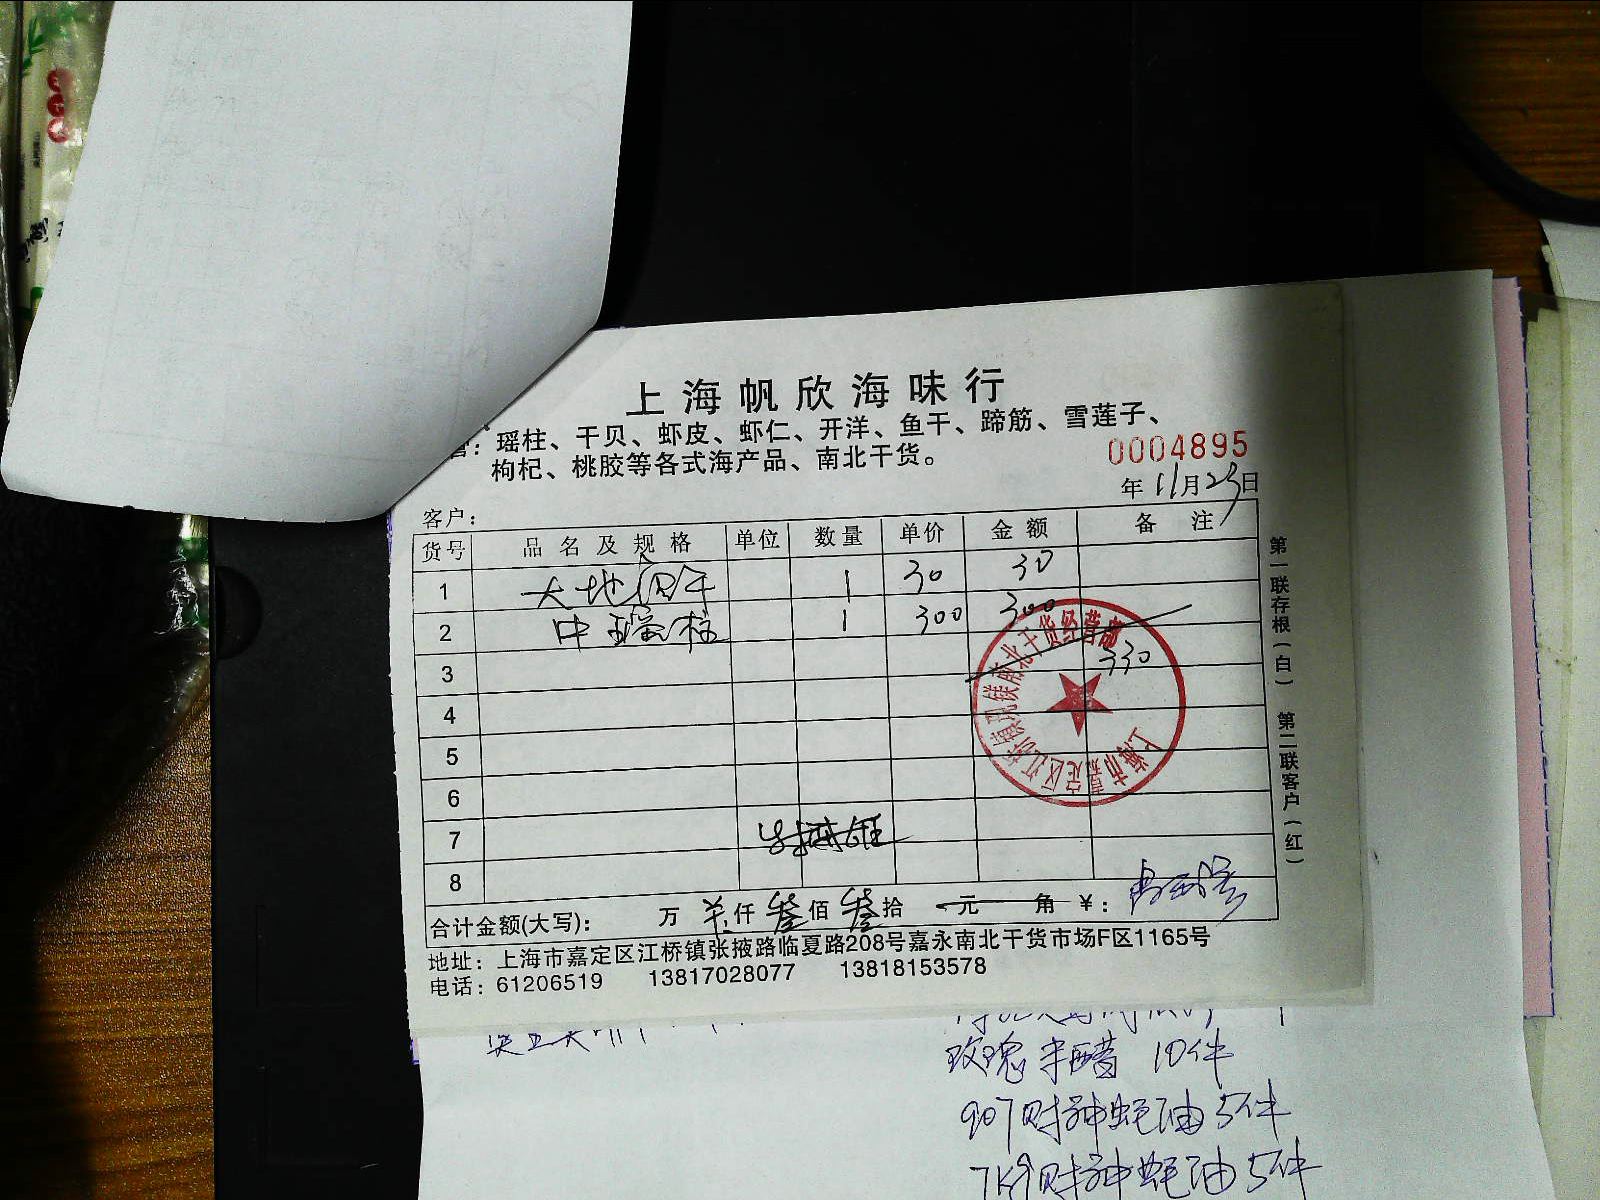 上海帆欣海味行
营：瑶柱、干贝、虾皮、虾仁、开洋、鱼干、蹄筋、雪莲子、
枸杞、桃胶等各式海产品、南北干货。
0004895
年 11月23日
客户：
货号 品名及规格 单位 数量 单价 金额 备注
1 大地 1 30 30
2 中瑶柱 1 300 300
3 330
4
5
6
7
8
合计金额(大写)： 万 仟 叁佰 叁拾 元 角 ￥：
地址：上海市嘉定区江桥镇张掖路临夏路208号嘉永南北干货市场F区1165号
电话：61206519 13817028077 13818153578
第一联存根（白） 第二联客户（红）
玫瑰米醋 10件
907财神蚝油5件
7kg财神蚝油5件